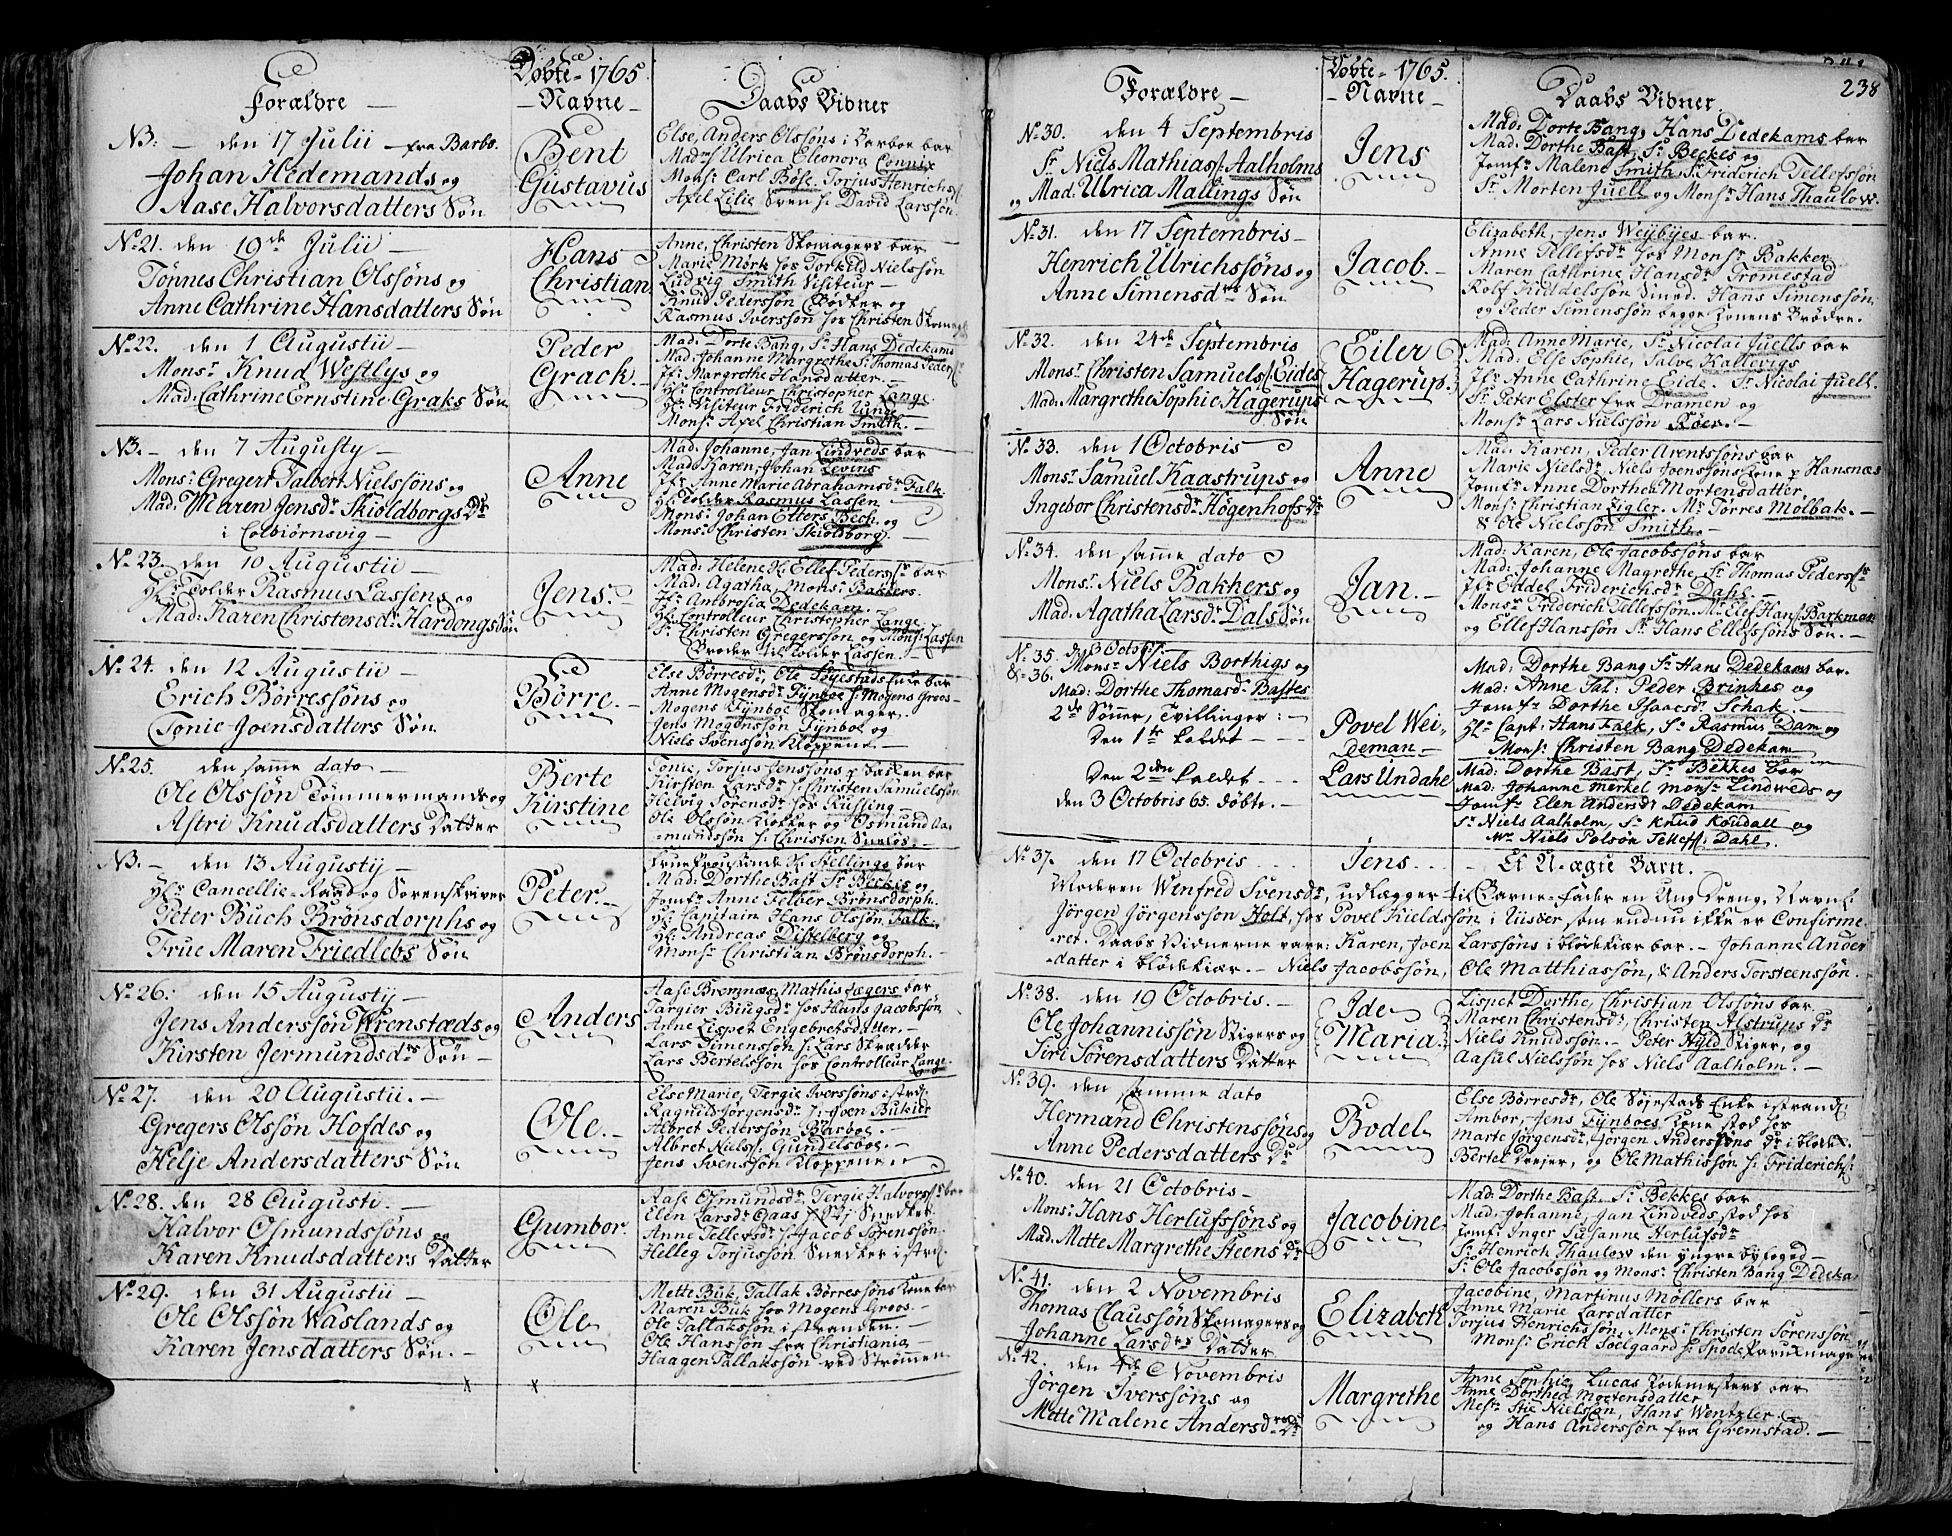 Forældre
Døbte 1765.
Navne
Daabs Vidner
NB: den 17 Julii fra Barbo.
Johan Hedemands og
Aase Halvorsdatters Søn
Bent
Gustavus
Else, Anders Olssøns i Barboe bar
Mad. Ulrica Eleonora Connix
Mons. Carl Böse. Torjus Henrichs
Axel Lilie Sven s. David Larssøn.
No 21. den 19de Julii
Tønnes Christian Olssøns og
Anne Cathrine Hansdatters Søn
Hans
Christian
Anne, Christen Skomagers bar
Marie Mørk hos Torkild Nielssøn
Ludvig Smith Visiteur
Knud Pederssøn Bødker og
Rasmus Iverssøn hos Christen Skomager
No 22. den 1 Augustii
Monsr Knud Westlys og
Mad: Cathrine Ernstine Graks Søn
Peder
Grack
Mad: Dorte Bang, Sr Hans Dedekams
Mad: Johanne Margrethe Sr Thomas Peders
Jfr Margrethe Hansdatter.
Hr Controlleur Christopher Lange
Hr Visiteur Friderich Unge
Monsr Axel Christian Smith.
NB. den 7 Augusty
Monsr Gregert Talbert Nielssøns og
Mad: Maren Jensdr Skioldborgs Dr
i Colbiørnsvig
Anne
Mad: Johanne, Jan Lindveds bar
Mad: Karen, Johan Levins
Jfr Anne Marie Abrahamsdr Falk.
Hr Tolder Rasmus Lassen
Monsr Johan Etters Bech. og
Monsr Christen Skioldborg.
No 23. den 10 Augustii
Hr Tolder Rasmus Lassens og
Mad: Karen Christensdr Hardongs Søn
Jens.
Mad: Helene Hr Ellef Peders bar
Mad: Agatha Monsr Bakkers.
Jfr Ambrosia Dedekam.
Hr Controlleur Christopher Lange
Sr Christen Gregerssøn og Mons. Lassen
Broder til Tolder Lassen.
No 24. den 12 Augustii
Erich Börressøns og
Tonie Joensdatters Søn
Børre.
Else Börresdr, Ole Søyestads bar
Anne Mogensdr Fynboe s. Mogens Groos
Mogens Fynboe Skomager,
Jens Mogenssøn Fynboe og
Niels Svenssøn Kloppene
No 25. den samme dato
Ole Olssøn Tømmermands og
Astri Knudsdatters Datter
Berte
Kirstine
Tonie, Torjus Jenssøns p Basken bar
Kirsten Larsdr s. Christen Samuelssøn
Helvig Sørensdr hos Russing
Ole Olssøn Klokker og Osmund Aa-
mundssøn s. Christen
NB. den 13 Augusty
Hr Cancellie-Raad og Sorenskriver
Peter Buch Brønsdorphs og
Frue Maren Friedlebs Søn
Peter.
Stellings bar
Mad: Dorthe Bast Sr Beckes og
Jomfr Anne Felber Brønsdorph.
Hr Capitain Hans Olssøn Falk.
Hr Andreas Distelberg og
Monsr Christian Brønsdorph.
No 26. den 15 Augusty
Jens Anderssøn Wrenstæds og
Kirsten Jermundsdrs Søn
Anders
Aase Bremnæs, Mathis Jægers bar
Targier Biugsdr hos Hans Jacobssøn
Anne Lispet Engebretsdatter.
Lars Simenssøn s. Lars Skrædder
Lars Bertelssøn hos Controlleur Lange.
No 27. den 20 Augustii.
Gregers Olssøn Hofdes og
Helje Andersdatters Søn
Ole.
Else Marie, Tergie Iverssøns i Strdr
Ragnild Jørgensdr s. Joen Bukier
Albret Pederssøn Barboe.
Albret Niels. Gundelsboe.
Jens Svenssøn Kloppene
No 28. den 28 Augusti.
Halvor Osmundssøns og
Karen Knudsdatters Datter
Gumbor.
Aase Osmundsdr Tergie Halvors bar
Elen Larsdr Aas Snedker
Anne Tellefsdr s. Jacob Sørenssøn.
Helleg Torjussøn Snedker i Str.
No 29. den 31 Augustii
Ole Olssøn Waslands og
Karen Jensdatters Søn.
Ole
Mette Buk, Tallak Börressøns Kone bar
Maren Buk hos Mogens Groos.
Ole Tallakssøn i Stranden.
Ole Hanssøn fra Christiania
Haagen Tallakssøn ved Strømmen
x x
Forældre
Døbte 1765.
Navne
Daabs Vidner
238
No 30. den 4 Septembris
Sr Niels Mathias: Aalholms
og Mad: Ulrica Mallings Søn
Jens
Mad: Dorte Bang, Hans Dedekams bar
Mad: Dorthe Bast, Sr Beckes og
Jomfr Malene Smith Sr Friderich Tellefssøn
Sr Morten Juell og Monsr Hans Thaulow.
No 31. den 17 Septembris
Henrich Ulrichssøns og
Anne Simensdrs Søn
Jacob.
Elizabeth, Jens Weybyes bar.
Anne Tellefsdr hos Monsr Bakker
Maren Cathrine Hansdr Tromestad
Rolf Kiddelssøn Smed. Hans Simenssøn
og Peder Simenssøn begge Konens Brødre.
No 32. den 24de Septembris
Monsr Christen Samuels: Eides
Mad: Margrethe Sophie Hagerups
Søn
Eiler
Hagerup.
Mad: Anne Marie, Sr Nicolai Juells bar
Mad: Else Sophie, Salve Kallevigs
Jfr Anne Cathrine Eide. Sr Nicolai Juell.
Sr Peter Elster fra Dramen og
Monsr Lars Nielssøn Röer.
No 33. den 1 Octobris
Monsr Samuel Kaastrups og
Ingebor Christensdr Högenhofs Dr
Anne
Mad: Karen, Peder Arentssøns bar
Marie Nielsdr Niels Joenssøns Kone p Hansnæs
Jomfr Anne Dorthea Mortensdatter,
Monsr Christian Zigler. Mr Torres Molbak.
& Ole Nielssøn Smith.
No 34. den samme dato
Monsr Niels Bakkers og
Mad: Agatha Larsdr Dals Søn
Jan.
Mad: Karen, Ole Jacobssøns bar
Mad: Johanne Magrethe, Sr Thomas Peders
Jfr Eddel Friderichsdr Dahl.
Monsr Friderich Tellefssøn. Mr Elef Hans Barkman
og Ellef Hanssøn Sr Hans Ellefssøns Søn.
No 35 & 36. d. 3 Octobr
Monsr Niels Borthigs og
Mad: Dorthe Thomasdr Bastes
2de Sønner, Tvillinger:
Den 1te kaldet
Povel Wei-
deman
Mad: Dorthe Bang Sr Hans Dedekams bar.
Mad: Anne Cat: Peder Brinkes og
Jomfr Dorthe Isaacsdr Schak.
Hr Capt: Hans Falk, Sr Rasmus Dam og
Monsr Christen Bang Dedekam
Den 2den kaldet
den 3 Octobris 65. døbte.
Lars Undahl
Mad: Dorthe Bast, Sr Bekkes bar
Mad: Johanne Merkel Monsr Lindveds og
Jomfr Elen Andersdr Dedekam
Sr Niels Aalholm, Sr Knud Koudall og
Mr Niels Polsøn Tellefs: Dahl.
No 37. den 17 Octobris
Jens.
Et U-ægte Barn.
Moderen Wenfred Svensdr, udlægger til Barne-Fader en Ung Dreng, Navnl:
Jörgen Jörgenssøn Holt, hos Povel Kieldssøn i Viseer, som endnu ikke er Confirme-
ret. Daabs Vidnerne vare: Karen, Joen Larssøns i blødekiær bar. Johanne Ander
datter i blødekiær. Niels Jacobssøn, Ole Matthiassøn, & Anders Torsteenssøn.
No 38. den 19 Octobris.
Ole Johannissøn Stigers og
Siri Sørensdatters Datter
Ide
Maria.
Lispet Dorthe, Christian Olssøns bar
Maren Christensdr, Christen Alstrups Dr
Niels Knudssøn. Peter Hyld Stiger, og
Aasul Nielssøn hos Niels Aalholm.
No 39. den samme dato
Hermand Christenssøns og
Anne Pedersdatters Dr
Bodel
Else Börresdr, Ole Söjestads Enke i Strand:
Ambor, Jens Fynboes Kone stod hos
Marte Jörgensdr, Jörgen Anderssøns Dr i blødk.
Bertel Drejer, og Ole Mathissøn s. Friderich
No 40. den 21 Octobris
Monsr Hans Herlufssøns og
Mad: Mette Margrethe Steens Dr
Jacobine
Mad: Dorthe Bast, Sr Bekkes bar
Mad: Johanne, Jan Lindveds stod hos
Jomfr Inger Susanne Herlufsdr
Sr Henrich Thaulow den yngre byfoged
Sr Ole Jacobssøn og Monsr Christen Bang Dedeka
No 41. den 2 Novembris
Thomas Claussøn Skomagers og
Johanne Larsdrs Datter
Elizabeth
Jacobine, Martinus Møllers bar
Anne Marie Larsdatter
Torjus Henrichssøn, Monsr Christen Sørenssøn
Monsr Erich Soelgaard s. Spode Parukmager
No 42. den 4de Novembris
Jörgen Iverssøns og
Mette Malene Andersdrs Dr
Margrethe
Anne Sophie, Lucas Rodemesters bar
Anne Dorthea Mortensdatter
Mesr Stie Nielssøn, Hans Wentzler.
og Hans Anderssøn fra Gremstad.